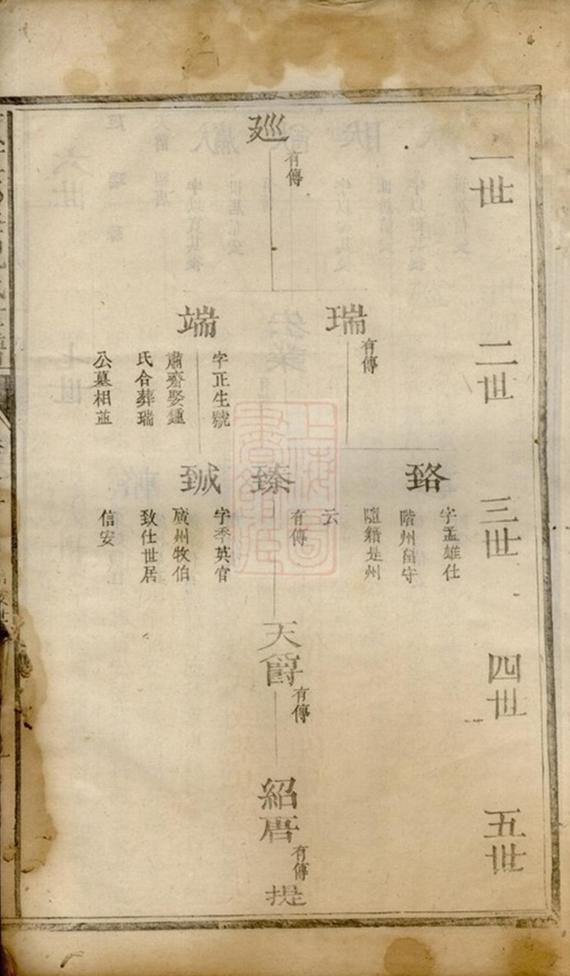 一世
二世
三世
四世
五世
廵
有傳
瑞
有傳
臵
字孟雄仕
階州留守
隨籍是州
云
臻
有傳
天爵
有傳
紹唐
有傳
端
字正生號
肅齋娶鍾
氏合葬瑞
公墓相並
臹
字季英官
廣州牧伯
致仕世居
信安